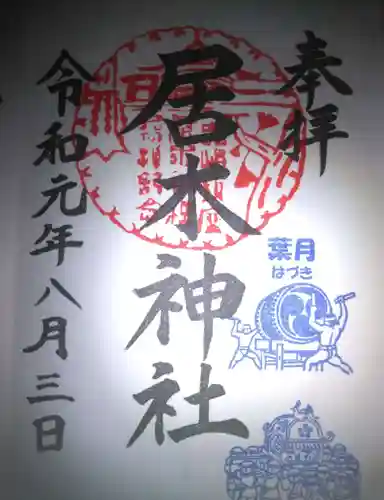 奉拝
居木神社
葉月
はづき
令和元年八月三日